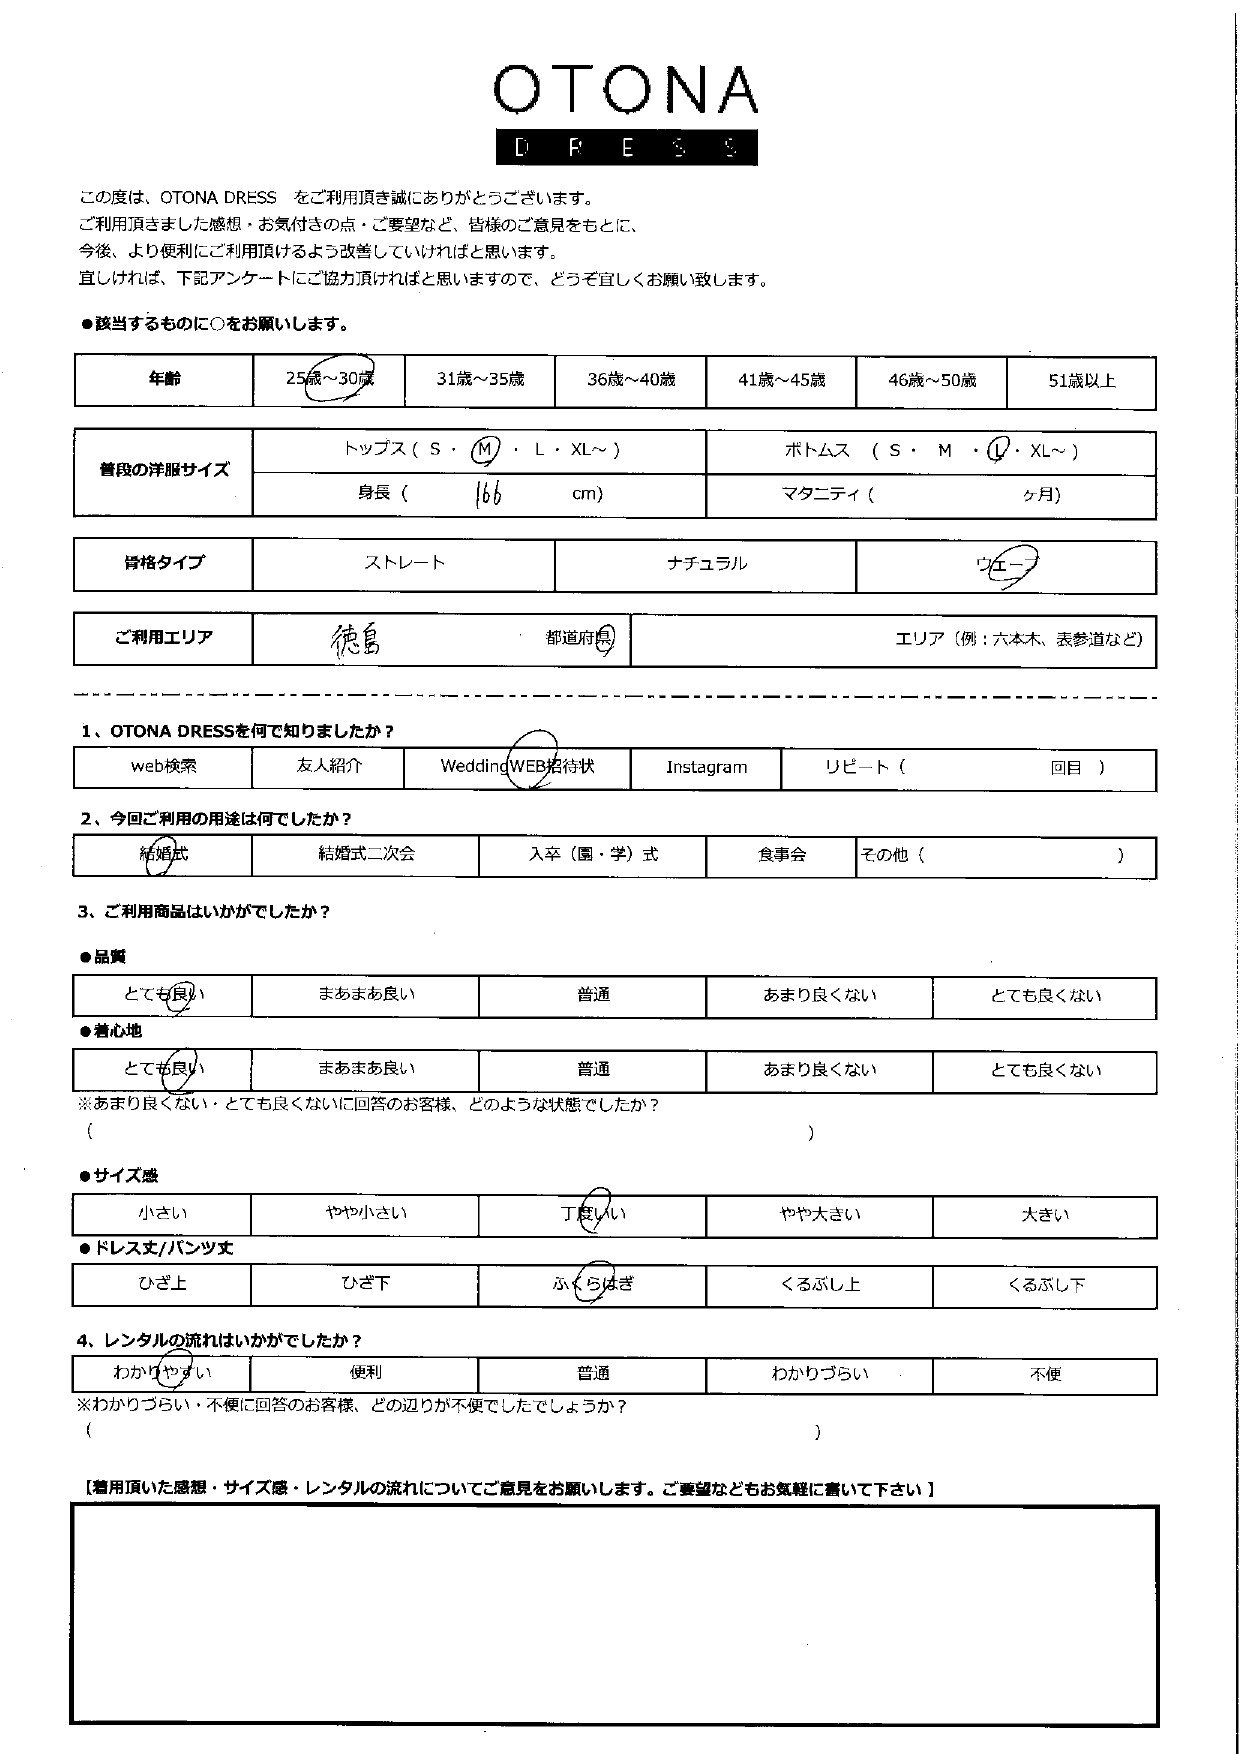 OTONA
DRESS
この度は、OTONA DRESS　をご利用頂き誠にありがとうございます。
ご利用頂きました感想・お気付きの点・ご要望など、皆様のご意見をもとに、
今後、より便利にご利用頂けるよう改善していければと思います。
宜しければ、下記アンケートにご協力頂ければと思いますので、どうぞ宜しくお願い致します。
●該当するものに○をお願いします。
年齢 25歳～30歳 31歳～35歳 36歳～40歳 41歳～45歳 46歳～50歳 51歳以上
普段の洋服サイズ トップス ( S ・ M ・ L ・ XL～ ) ボトムス ( S ・ M ・ L ・ XL～ )
身長 ( 166 cm) マタニティ ( ヶ月)
骨格タイプ ストレート ナチュラル ウェーブ
ご利用エリア 徳島 都道府県 エリア（例：六本木、表参道など）
1、OTONA DRESSを何で知りましたか？
web検索 友人紹介 WeddingWEB招待状 Instagram リピート（ 回目 ）
2、今回ご利用の用途は何でしたか？
結婚式 結婚式二次会 入卒（園・学）式 食事会 その他（ ）
3、ご利用商品はいかがでしたか？
●品質
とても良い まあまあ良い 普通 あまり良くない とても良くない
●着心地
とても良い まあまあ良い 普通 あまり良くない とても良くない
※あまり良くない・とても良くないに回答のお客様、どのような状態でしたか？
( )
●サイズ感
小さい やや小さい 丁度いい やや大きい 大きい
●ドレス丈/パンツ丈
ひざ上 ひざ下 ふくらはぎ くるぶし上 くるぶし下
4、レンタルの流れはいかがでしたか？
わかりやすい 便利 普通 わかりづらい 不便
※わかりづらい・不便に回答のお客様、どの辺りが不便でしたでしょうか？
( )
【着用頂いた感想・サイズ感・レンタルの流れについてご意見をお願いします。ご要望などもお気軽に書いて下さい】